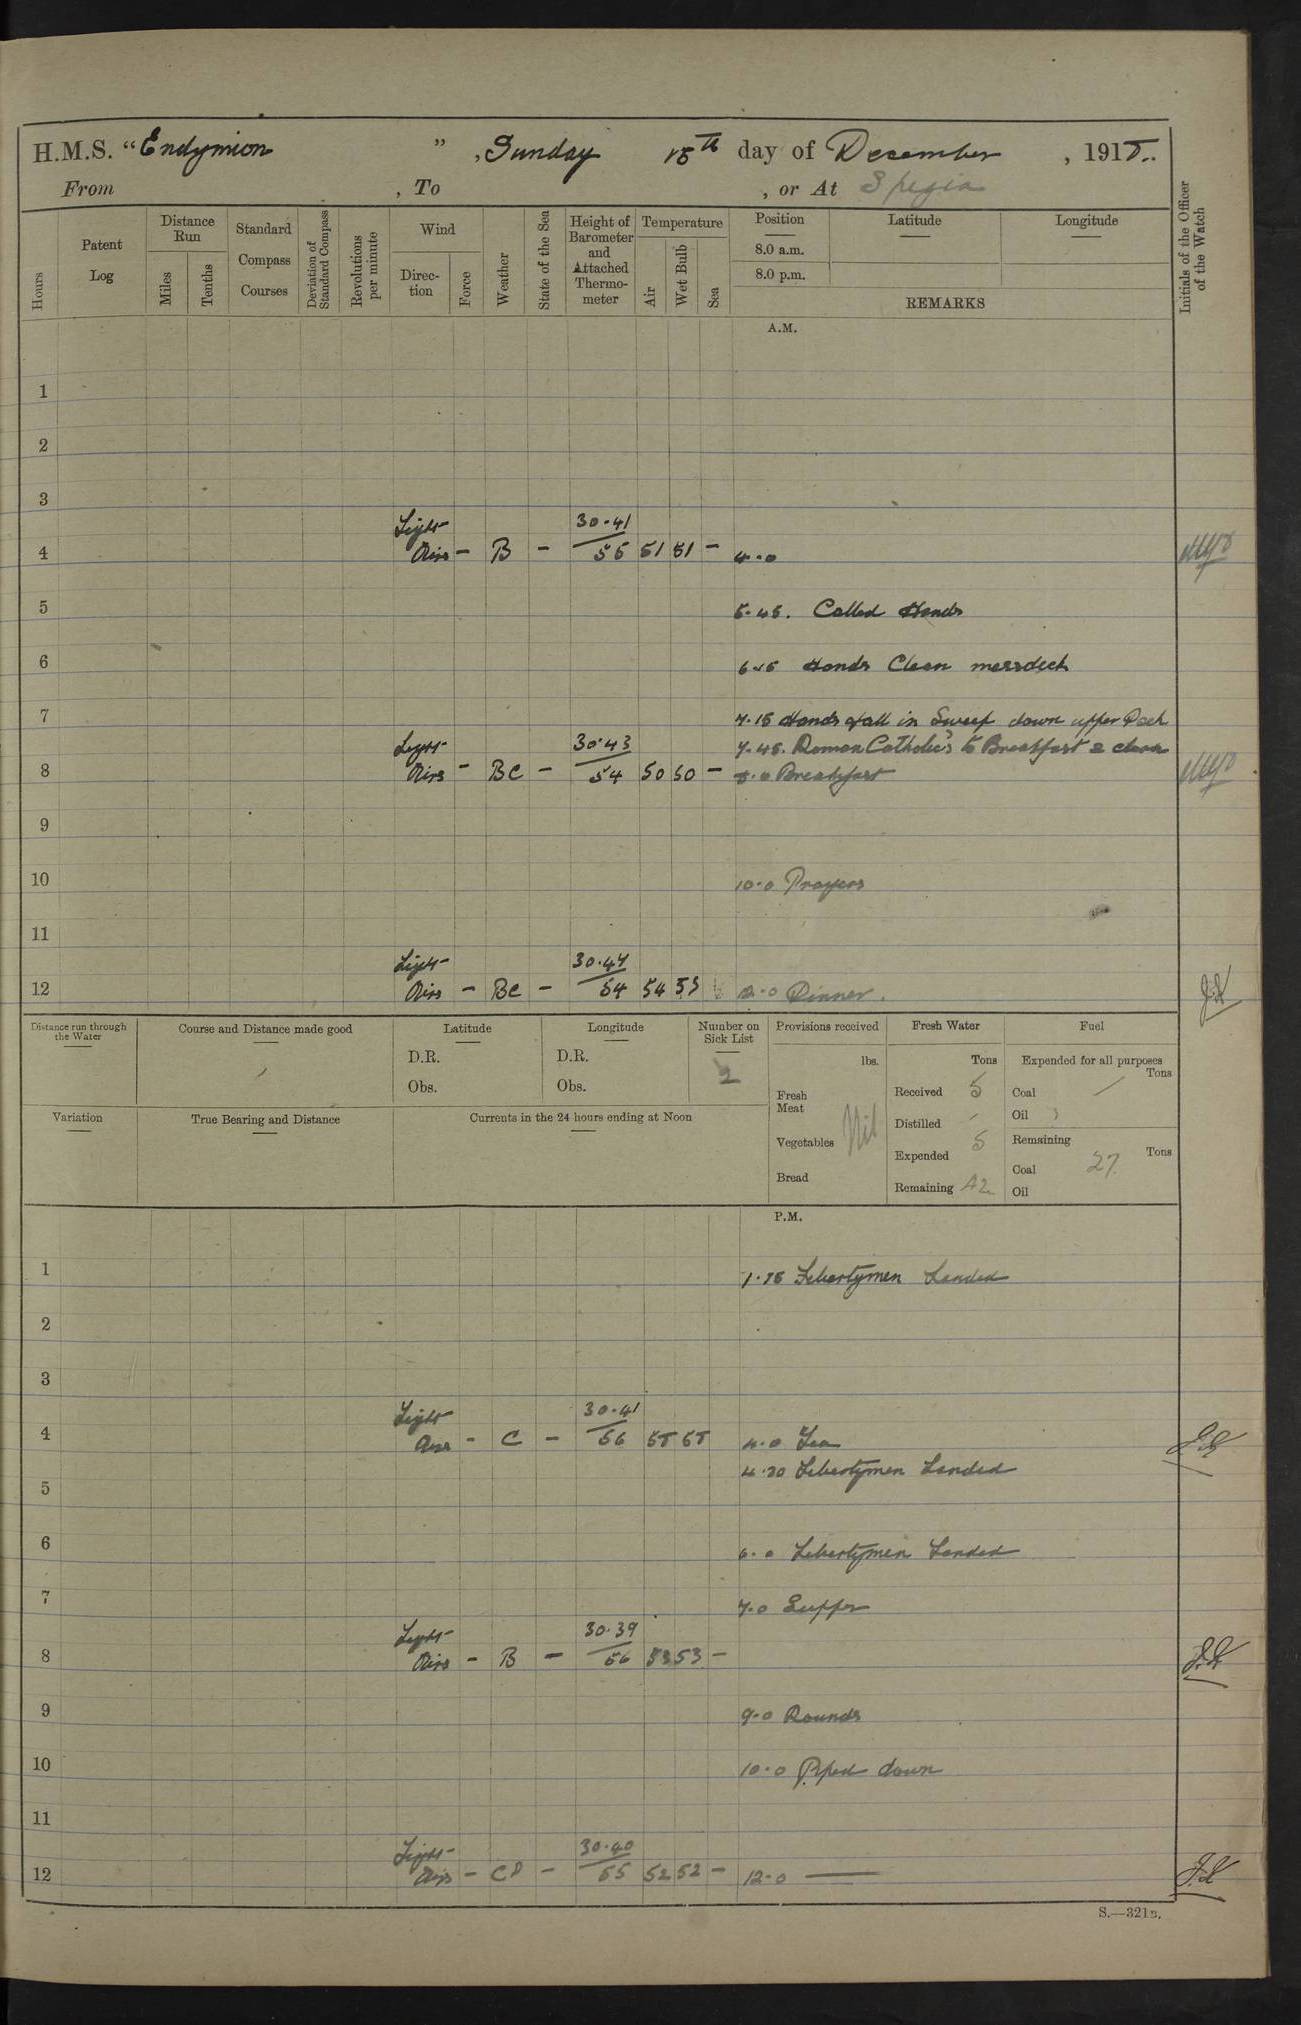 H.M.S. "Endymion", Sunday 15th day of December, 1918.
From , To , or At Spezia
Hours
Patent Log
Distance Run
Miles
Tenths
Standard Compass Courses
Deviation of Standard Compass
Revolutions per minute
Wind
Direction
Force
Weather
State of the Sea
Height of Barometer and Attached Thermometer
Temperature
Air
Wet Bulb
Sea
Position
8.0 a.m.
8.0 p.m.
Latitude
Longitude
REMARKS
Initials of the Officer of the Watch
A.M.
1
2
3
Light 30.41
4 Airs - B - 55 51 51 - 4.0
5 5.45. Called Hands
6 6.15 Hands Clean messdeck
7 7.15 Hands fall in Sweep down upper Deck
Light 30.43 7.45. Roman Catholics to Breakfast & clean
8 Airs - BC - 54 50 50 - 8.0 Breakfast
9
10 10.0 Prayers
11
Light 30.44
12 Airs - BC - 54 54 53 12.0 Dinner.
Distance run through the Water
Course and Distance made good
Latitude
D.R.
Obs.
Longitude
D.R.
Obs.
Number on Sick List
2
Provisions received
lbs.
Fresh Meat
Vegetables Nil
Bread
Fresh Water
Tons
Received 5
Distilled -
Expended 5
Remaining 42
Fuel
Expended for all purposes
Tons
Coal
Oil
Remaining
Tons
Coal 27
Oil
Variation
True Bearing and Distance
Currents in the 24 hours ending at Noon
P.M.
1 1.15 Libertymen Landed
2
3
Light 30.41
4 Airs - C - 56 55 55 4.0 Tea
4.30 Libertymen Landed
5
6 6.0 Libertymen Landed
7 7.0 Supper
Light 30.39
8 Airs - B - 56 53 53 -
9 9.0 Rounds
10 10.0 Piped down
11
Light 30.40
12 Airs - - 55 52 52 - 12.0 —
S.—321B.